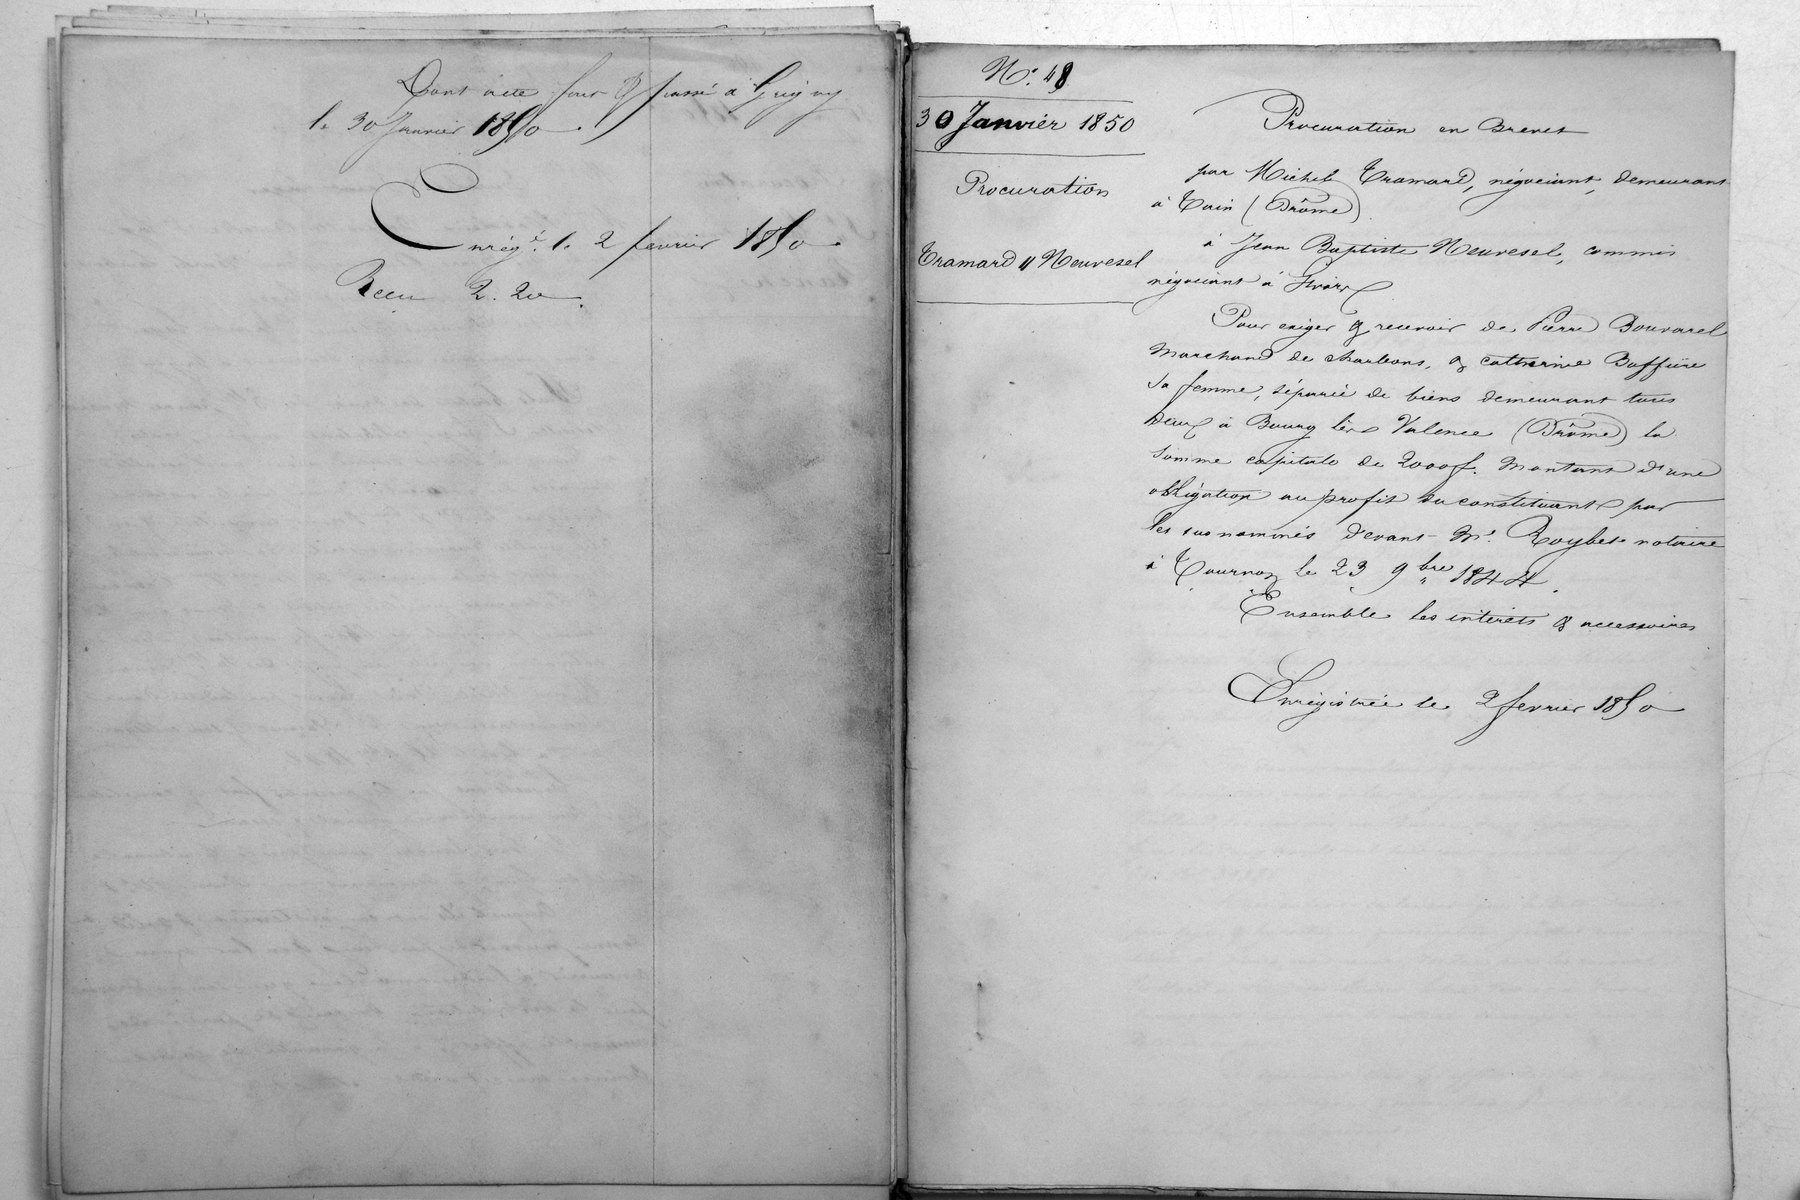 Dont acte fait & passé à Grigny
le 30 Janvier 1850.
Enrég.é le 2 fevrier 1850
Reçu 2.20.
N.o 48
30 Janvier 1850
Procuration
Tramard // Neuvesel
Procuration en Brevet
par Michel Tramard, négociant, demeurant
à Tain (Drôme)
à Jean Baptiste Neuvesel, commis
négociant à Givors
Pour exiger & recevoir de Pierre Bouvarel
Marchand de charbons, & catherine Buffière
sa femme, séparée de biens demeurant tous
deux à Bourg lès Valence (Drôme) la
somme capitale de 2000f. Montant d'une
obligation au profit du constituant par
les susnommés devant M.e Roybet notaire
à Tournon le 23 9bre 1844.
Ensemble les intérêts & accessoires
Enrégistrée le 2 fevrier 1850